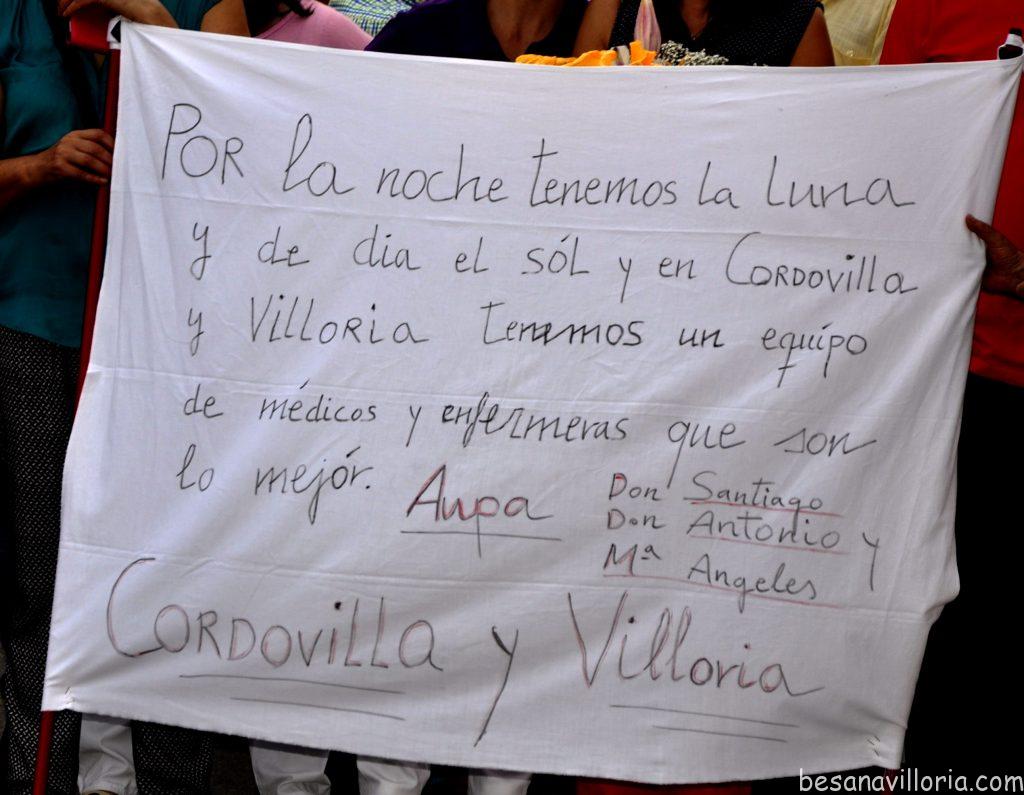 POR la noche tenemos la luna
y de dia el sól y en CORDOVILLA
y VILLORIA tenemos un equípo
de médicos y enfermeras que son
lo mejór. Aupa Don Santiago
Don Antonio y
Mª Angeles
CORDOVILLA y Villoria
besanavilloria.com